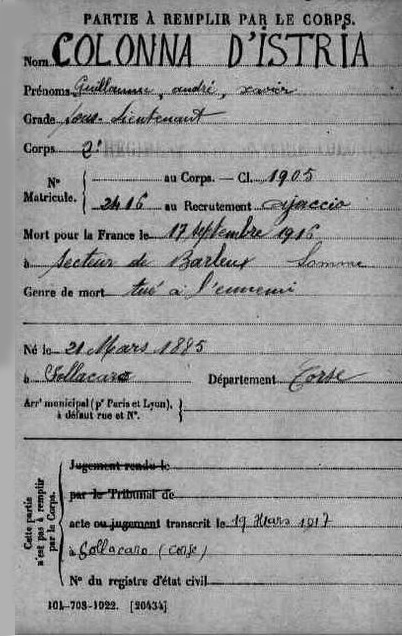 PARTIE À REMPLIR PAR LE CORPS.
Nom COLONNA D'ISTRIA
Prénoms Guillaume, andré, xavier
Grade Sous-Lieutenant
Corps 2e
Nº Matricule. { au Corps. — Cl. 1905
2416 au Recrutement Ajaccio
Mort pour la France le 17 septembre 1916
à secteur de Barleux Somme
Genre de mort tué à l'ennemi
Né le 21 Mars 1885
à Sollacaro Département Corse
Arrt municipal (pr Paris et Lyon), à défaut rue et Nº. }
Cette partie n'est pas à remplir par le Corps.
Jugement rendu le
par le Tribunal de
acte ou jugement transcrit le 19 Mars 1917
à Sollacaro (Corse)
Nº du registre d'état civil
101-708-1922. [26434]